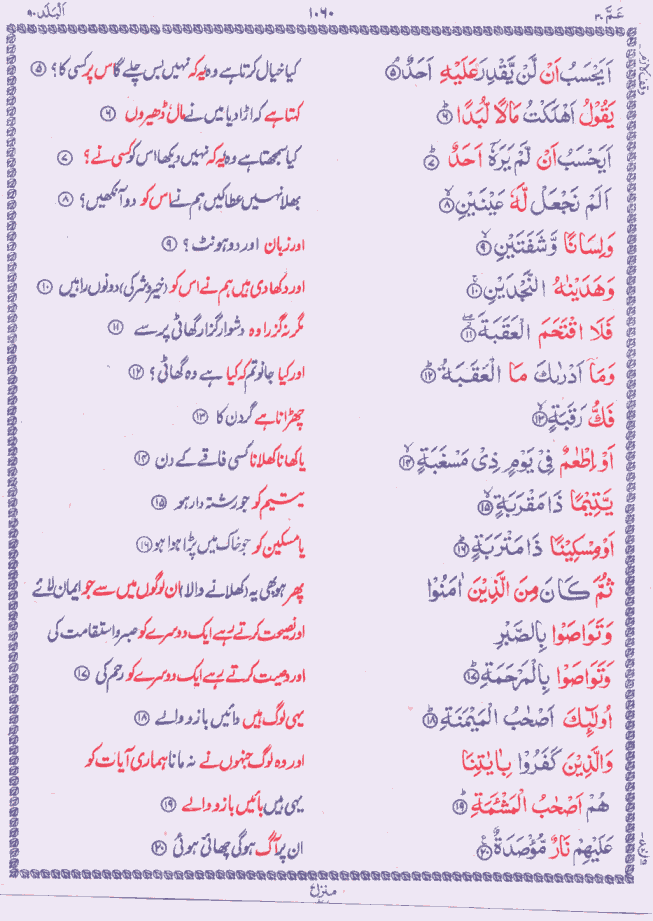 عَمَّ ٣٠
١٠٦٠
اَلْبَلَد ٩٠
اَيَحْسَبُ اَنْ لَّنْ يَّقْدِرَ عَلَيْهِ اَحَدٌ ﴿٥﴾ کیا خیال کرتا ہے وہ یہ کہ نہیں بس چلے گا اس پر کسی کا؟ ﴿٥﴾
يَقُوْلُ اَهْلَكْتُ مَالًا لُّبَدًا ﴿٦﴾ کہتا ہے کہ اڑا دیا میں نے مال ڈھیروں ﴿٦﴾
اَيَحْسَبُ اَنْ لَّمْ يَرَهٗٓ اَحَدٌ ﴿٧﴾ کیا سمجھتا ہے وہ یہ کہ نہیں دیکھا اس کو کسی نے؟ ﴿٧﴾
اَلَمْ نَجْعَلْ لَّهٗ عَيْنَيْنِ ﴿٨﴾ بھلا نہیں عطا کیں ہم نے اس کو دو آنکھیں؟ ﴿٨﴾
وَلِسَانًا وَّشَفَتَيْنِ ﴿٩﴾ اور زبان اور دو ہونٹ؟ ﴿٩﴾
وَهَدَيْنٰهُ النَّجْدَيْنِ ﴿١٠﴾ اور دکھا دی ہیں ہم نے اس کو (خیر و شر کی) دونوں راہیں ﴿١٠﴾
فَلَا اقْتَحَمَ الْعَقَبَةَ ﴿١١﴾ مگر نہ گزرا وہ دشوار گزار گھاٹی پر سے ﴿١١﴾
وَمَآ اَدْرٰىكَ مَا الْعَقَبَةُ ﴿١٢﴾ اور کیا جانو تم کہ کیا ہے وہ گھاٹی؟ ﴿١٢﴾
فَكُّ رَقَبَةٍ ﴿١٣﴾ چھڑانا ہے گردن کا ﴿١٣﴾
اَوْ اِطْعٰمٌ فِيْ يَوْمٍ ذِيْ مَسْغَبَةٍ ﴿١٤﴾ یا کھانا کھلانا کسی فاقے کے دن ﴿١٤﴾
يَّتِيْمًا ذَا مَقْرَبَةٍ ﴿١٥﴾ یتیم کو جو رشتہ دار ہو ﴿١٥﴾
اَوْ مِسْكِيْنًا ذَا مَتْرَبَةٍ ﴿١٦﴾ یا مسکین کو جو خاک میں پڑا ہوا ہو ﴿١٦﴾
ثُمَّ كَانَ مِنَ الَّذِيْنَ اٰمَنُوْا پھر ہو بھی یہ دکھلانے والا ان لوگوں میں سے جو ایمان لائے
وَتَوَاصَوْا بِالصَّبْرِ اور نصیحت کرتے رہے ایک دوسرے کو صبر و استقامت کی
وَتَوَاصَوْا بِالْمَرْحَمَةِ ﴿١٧﴾ اور وصیت کرتے رہے ایک دوسرے کو رحم کی ﴿١٧﴾
اُولٰٓئِكَ اَصْحٰبُ الْمَيْمَنَةِ ﴿١٨﴾ یہی لوگ ہیں دائیں بازو والے ﴿١٨﴾
وَالَّذِيْنَ كَفَرُوْا بِاٰيٰتِنَا اور وہ لوگ جنہوں نے نہ مانا ہماری آیات کو
هُمْ اَصْحٰبُ الْمَشْـَٔمَةِ ﴿١٩﴾ یہی ہیں بائیں بازو والے ﴿١٩﴾
عَلَيْهِمْ نَارٌ مُّؤْصَدَةٌ ﴿٢٠﴾ ان پر آگ ہوگی چھائی ہوئی ﴿٢٠﴾